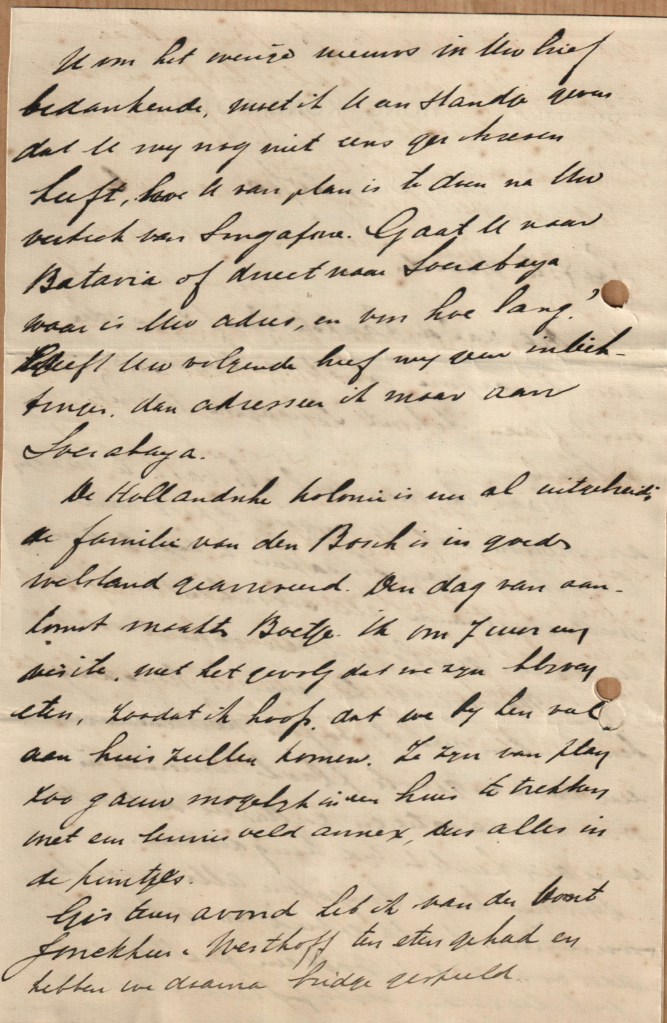 U om het overige nieuws in Uw brief
bedankende, moet ik U een standje geven
dat U mij nog niet eens geschreven
heeft, hoe U van plan is te doen na Uw
vertrek van Singapore. Gaat U naar
Batavia of direct naar Soerabaya
waar is Uw adres, en voor hoe lang?
Geeft Uw volgende brief mij geen inlich-
tingen, dan adresseer ik maar aan
Soerabaya.
De Hollandsche kolonie is nu al uitgebreid;
de familie van den Bosch is in goede
welstand gearriveerd. Den dag van aan-
komst maakte Boetje & ik om 7 uur een
visite, met het gevolg dat we zijn blijven
eten, zoodat ik hoop, dat we bij hen veel
aan huis zullen komen. Ze zijn van plan
zoo gauw mogelijk in een huis te trekken
met een tennisveld annex, dus alles in
de puntjes.
Gisteren avond heb ik van der
Jonckheer & Westhoff ten eten gehad en
hebben we daarna bridge gespeeld.